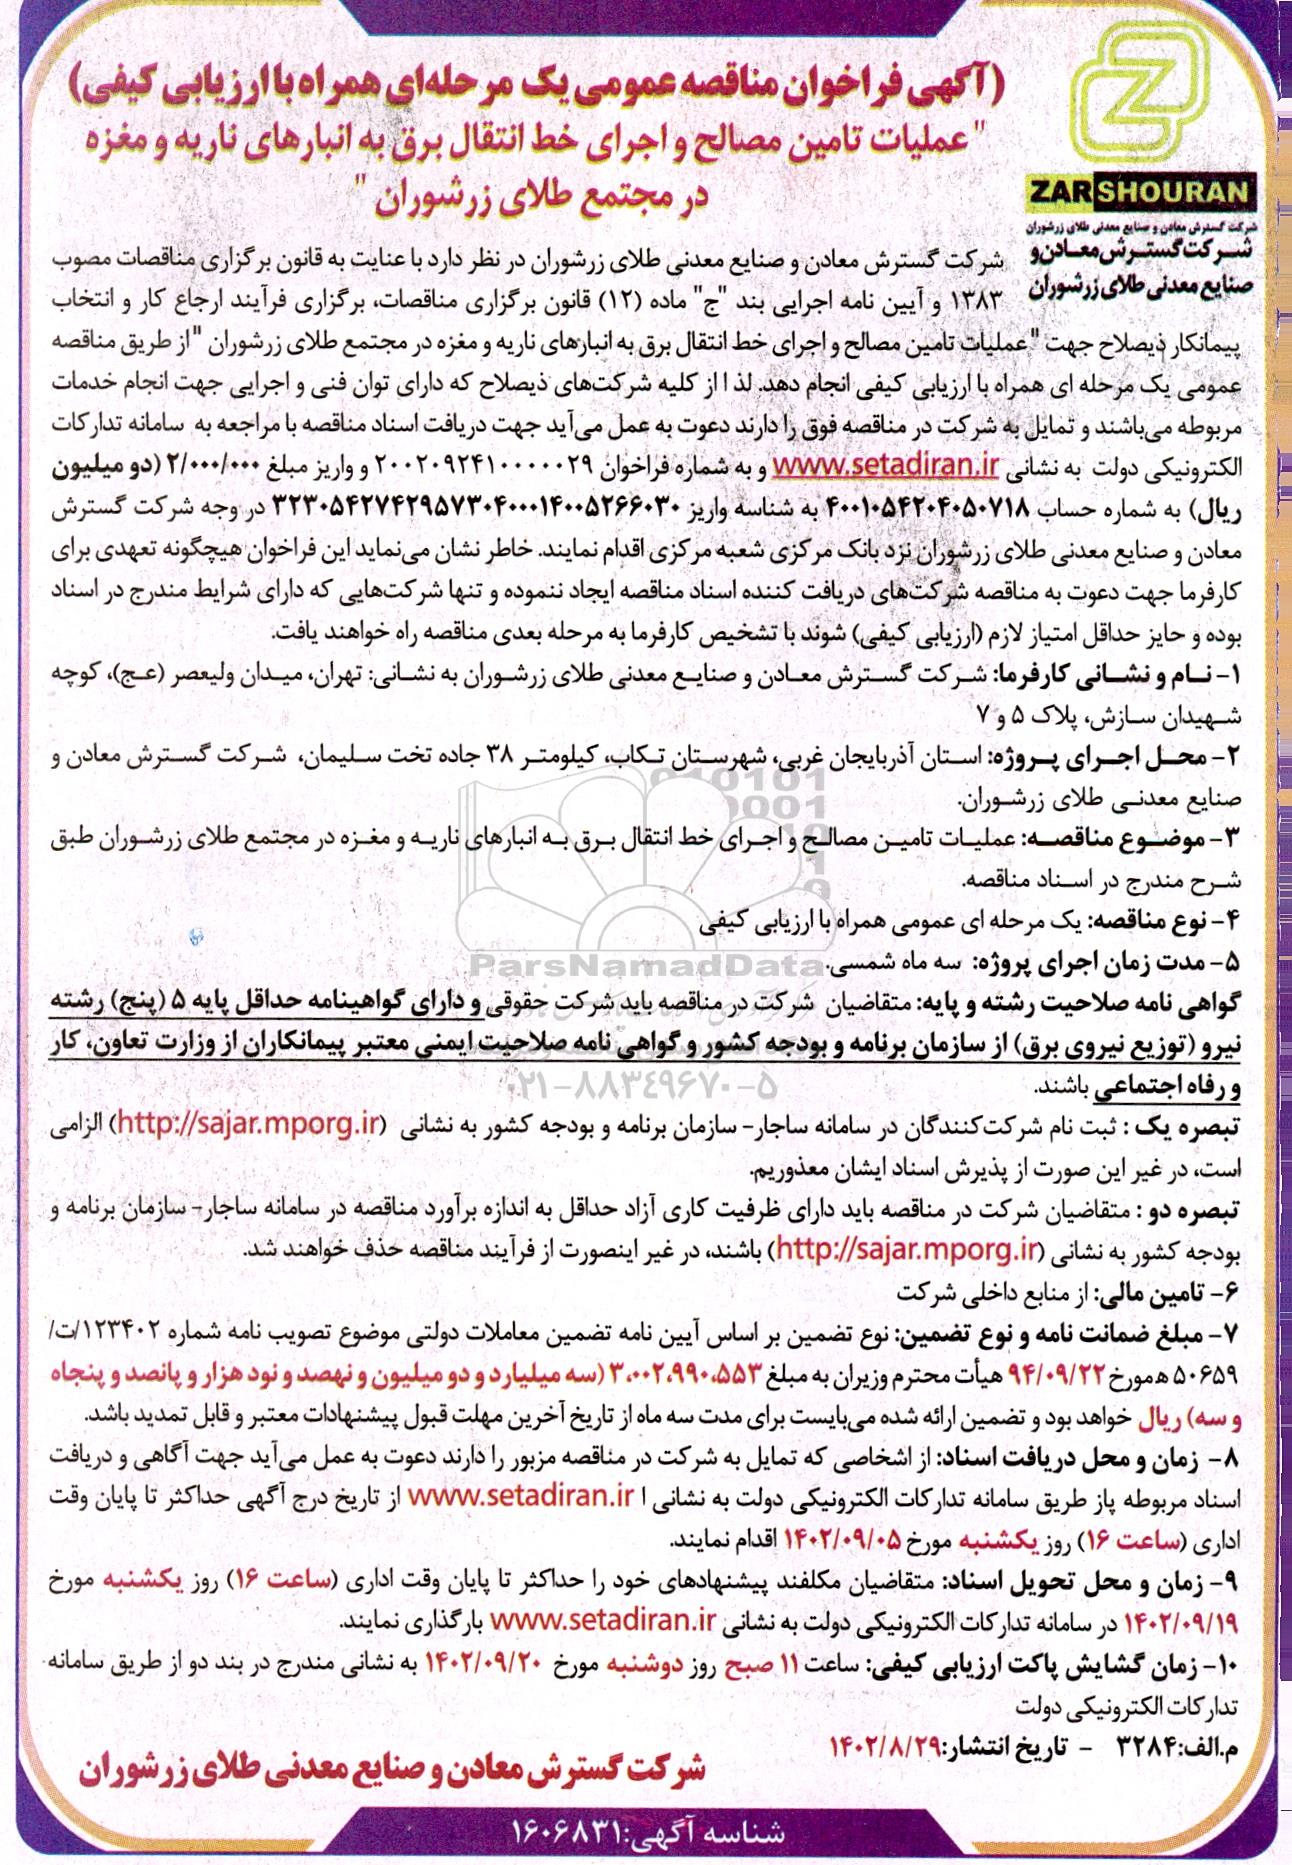 ZARSHOURAN
شرکت گسترش معادن و صنایع معدنی طلای زرشوران
شرکت گسترش معادن و
صنایع معدنی طلای زرشوران
(آگهی فراخوان مناقصه عمومی یک مرحله‌ای همراه با ارزیابی کیفی)
"عملیات تامین مصالح و اجرای خط انتقال برق به انبارهای ناریه و مغزه
در مجتمع طلای زرشوران "
شرکت گسترش معادن و صنایع معدنی طلای زرشوران در نظر دارد با عنایت به قانون برگزاری مناقصات مصوب
۱۳۸۳ و آیین نامه اجرایی بند "ج" ماده (۱۲) قانون برگزاری مناقصات، برگزاری فرآیند ارجاع کار و انتخاب
پیمانکار ذیصلاح جهت "عملیات تامین مصالح و اجرای خط انتقال برق به انبارهای ناریه و مغزه در مجتمع طلای زرشوران " از طریق مناقصه
عمومی یک مرحله ای همراه با ارزیابی کیفی انجام دهد. لذا از کلیه شرکت‌های ذیصلاح که دارای توان فنی و اجرایی جهت انجام خدمات
مربوطه می‌باشند و تمایل به شرکت در مناقصه فوق را دارند دعوت به عمل می‌آید جهت دریافت اسناد مناقصه با مراجعه به سامانه تدارکات
الکترونیکی دولت به نشانی www.setadiran.ir و به شماره فراخوان ۲۰۰۲۰۹۲۴۱۰۰۰۰۰۲۹ و واریز مبلغ ۲/۰۰۰/۰۰۰ (دو میلیون
ریال) به شماره حساب ۴۰۰۱۰۵۴۲۰۴۰۵۰۷۱۸ به شناسه واریز ۳۲۳۰۵۴۲۷۴۲۹۵۷۳۰۴۰۰۰۱۴۰۰۵۲۶۶۰۳۰ در وجه شرکت گسترش
معادن و صنایع معدنی طلای زرشوران نزد بانک مرکزی شعبه مرکزی اقدام نمایند. خاطر نشان می‌نماید این فراخوان هیچگونه تعهدی برای
کارفرما جهت دعوت به مناقصه شرکت‌های دریافت کننده اسناد مناقصه ایجاد ننموده و تنها شرکت‌هایی که دارای شرایط مندرج در اسناد
بوده و حایز حداقل امتیاز لازم (ارزیابی کیفی) شوند با تشخیص کارفرما به مرحله بعدی مناقصه راه خواهند یافت.
۱- نام و نشانی کارفرما: شرکت گسترش معادن و صنایع معدنی طلای زرشوران به نشانی: تهران، میدان ولیعصر (عج)، کوچه
شهیدان سازش، پلاک ۵ و ۷
۲- محل اجرای پروژه: استان آذربایجان غربی، شهرستان تکاب، کیلومتر ۳۸ جاده تخت سلیمان، شرکت گسترش معادن و
صنایع معدنی طلای زرشوران.
۳- موضوع مناقصه: عملیات تامین مصالح و اجرای خط انتقال برق به انبارهای ناریه و مغزه در مجتمع طلای زرشوران طبق
شرح مندرج در اسناد مناقصه.
۴- نوع مناقصه: یک مرحله ای عمومی همراه با ارزیابی کیفی
۵- مدت زمان اجرای پروژه: سه ماه شمسی.
ParsNamadData
گواهی نامه صلاحیت رشته و پایه: متقاضیان شرکت در مناقصه باید شرکت حقوقی و دارای گواهینامه حداقل پایه ۵ (پنج) رشته
نیرو (توزیع نیروی برق) از سازمان برنامه و بودجه کشور و گواهی نامه صلاحیت ایمنی معتبر پیمانکاران از وزارت تعاون، کار
و رفاه اجتماعی باشند.
۰۲۱-۸۸۳۴۹۶۷۰-۵
تبصره یک : ثبت نام شرکت‌کنندگان در سامانه ساجار- سازمان برنامه و بودجه کشور به نشانی (http://sajar.mporg.ir) الزامی
است، در غیر این صورت از پذیرش اسناد ایشان معذوریم.
تبصره دو : متقاضیان شرکت در مناقصه باید دارای ظرفیت کاری آزاد حداقل به اندازه برآورد مناقصه در سامانه ساجار- سازمان برنامه و
بودجه کشور به نشانی (http://sajar.mporg.ir) باشند، در غیر اینصورت از فرآیند مناقصه حذف خواهند شد.
۶- تامین مالی: از منابع داخلی شرکت
۷- مبلغ ضمانت نامه و نوع تضمین: نوع تضمین بر اساس آیین نامه تضمین معاملات دولتی موضوع تصویب نامه شماره ۱۲۳۴۰۲/ت/
۵۰۶۵۹ ه مورخ ۹۴/۰۹/۲۲ هیأت محترم وزیران به مبلغ ۳،۰۰۲،۹۹۰،۵۵۳ (سه میلیارد و دو میلیون و نهصد و نود هزار و پانصد و پنجاه
و سه) ریال خواهد بود و تضمین ارائه شده می‌بایست برای مدت سه ماه از تاریخ آخرین مهلت قبول پیشنهادات معتبر و قابل تمدید باشد.
۸- زمان و محل دریافت اسناد: از اشخاصی که تمایل به شرکت در مناقصه مزبور را دارند دعوت به عمل می‌آید جهت آگاهی و دریافت
اسناد مربوطه پاز طریق سامانه تدارکات الکترونیکی دولت به نشانی ا www.setadiran.ir از تاریخ درج آگهی حداکثر تا پایان وقت
اداری (ساعت ۱۶) روز یکشنبه مورخ ۱۴۰۲/۰۹/۰۵ اقدام نمایند.
۹- زمان و محل تحویل اسناد: متقاضیان مکلفند پیشنهادهای خود را حداکثر تا پایان وقت اداری (ساعت ۱۶) روز یکشنبه مورخ
۱۴۰۲/۰۹/۱۹ در سامانه تدارکات الکترونیکی دولت به نشانی www.setadiran.ir بارگذاری نمایند.
۱۰- زمان گشایش پاکت ارزیابی کیفی: ساعت ۱۱ صبح روز دوشنبه مورخ ۱۴۰۲/۰۹/۲۰ به نشانی مندرج در بند دو از طریق سامانه
تدارکات الکترونیکی دولت
م.الف:۳۲۸۴ - تاریخ انتشار:۱۴۰۲/۸/۲۹
شرکت گسترش معادن و صنایع معدنی طلای زرشوران
شناسه آگهی:۱۶۰۶۸۳۱